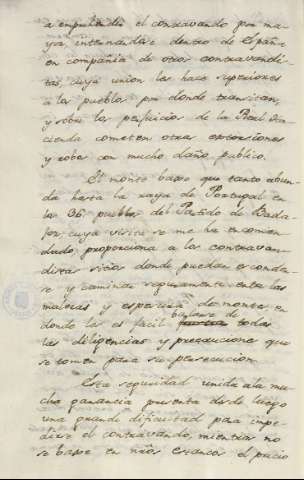 a emprender el contravando por ma-
yor, internandose dentro de España
en compañia de otros contravandis-
tas, cuya union los hace superiores
a los pueblos por donde transitan,
y sobre los perjuicios de la Real Ha-
cienda cometen otras extorsiones
y robos con mucho daño publico.
El monte baxo que tanto abun-
da hasta la raya de Portugal en
los 36 pueblos del Partido de Bada-
joz, cuya visita se me ha encomen-
dado, proporciona a los contravan-
distas sitios donde puedan esconder-
se y caminar seguramente entre las
malezas y espesura de monte, en
donde les es facil burlarse de todas
las diligencias y precauciones que
se tomen para su persecucion.
Esta seguridad unida a la mu-
cha ganancia presenta desde luego
una grande dificultad para impe-
dirse el contravando, mientras no
se baxe en nros estancos el precio